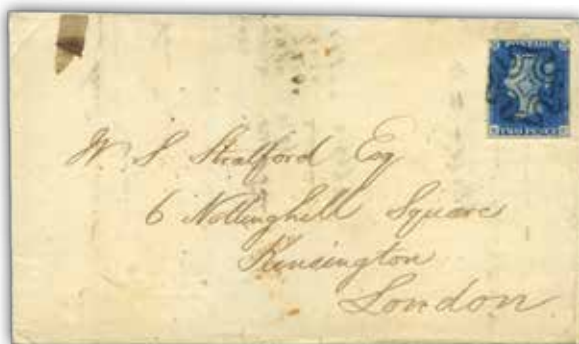 POSTAGE
TWO PENCE
W. S. Stratford Esq
6 Nottinghill Square
Kensington
London